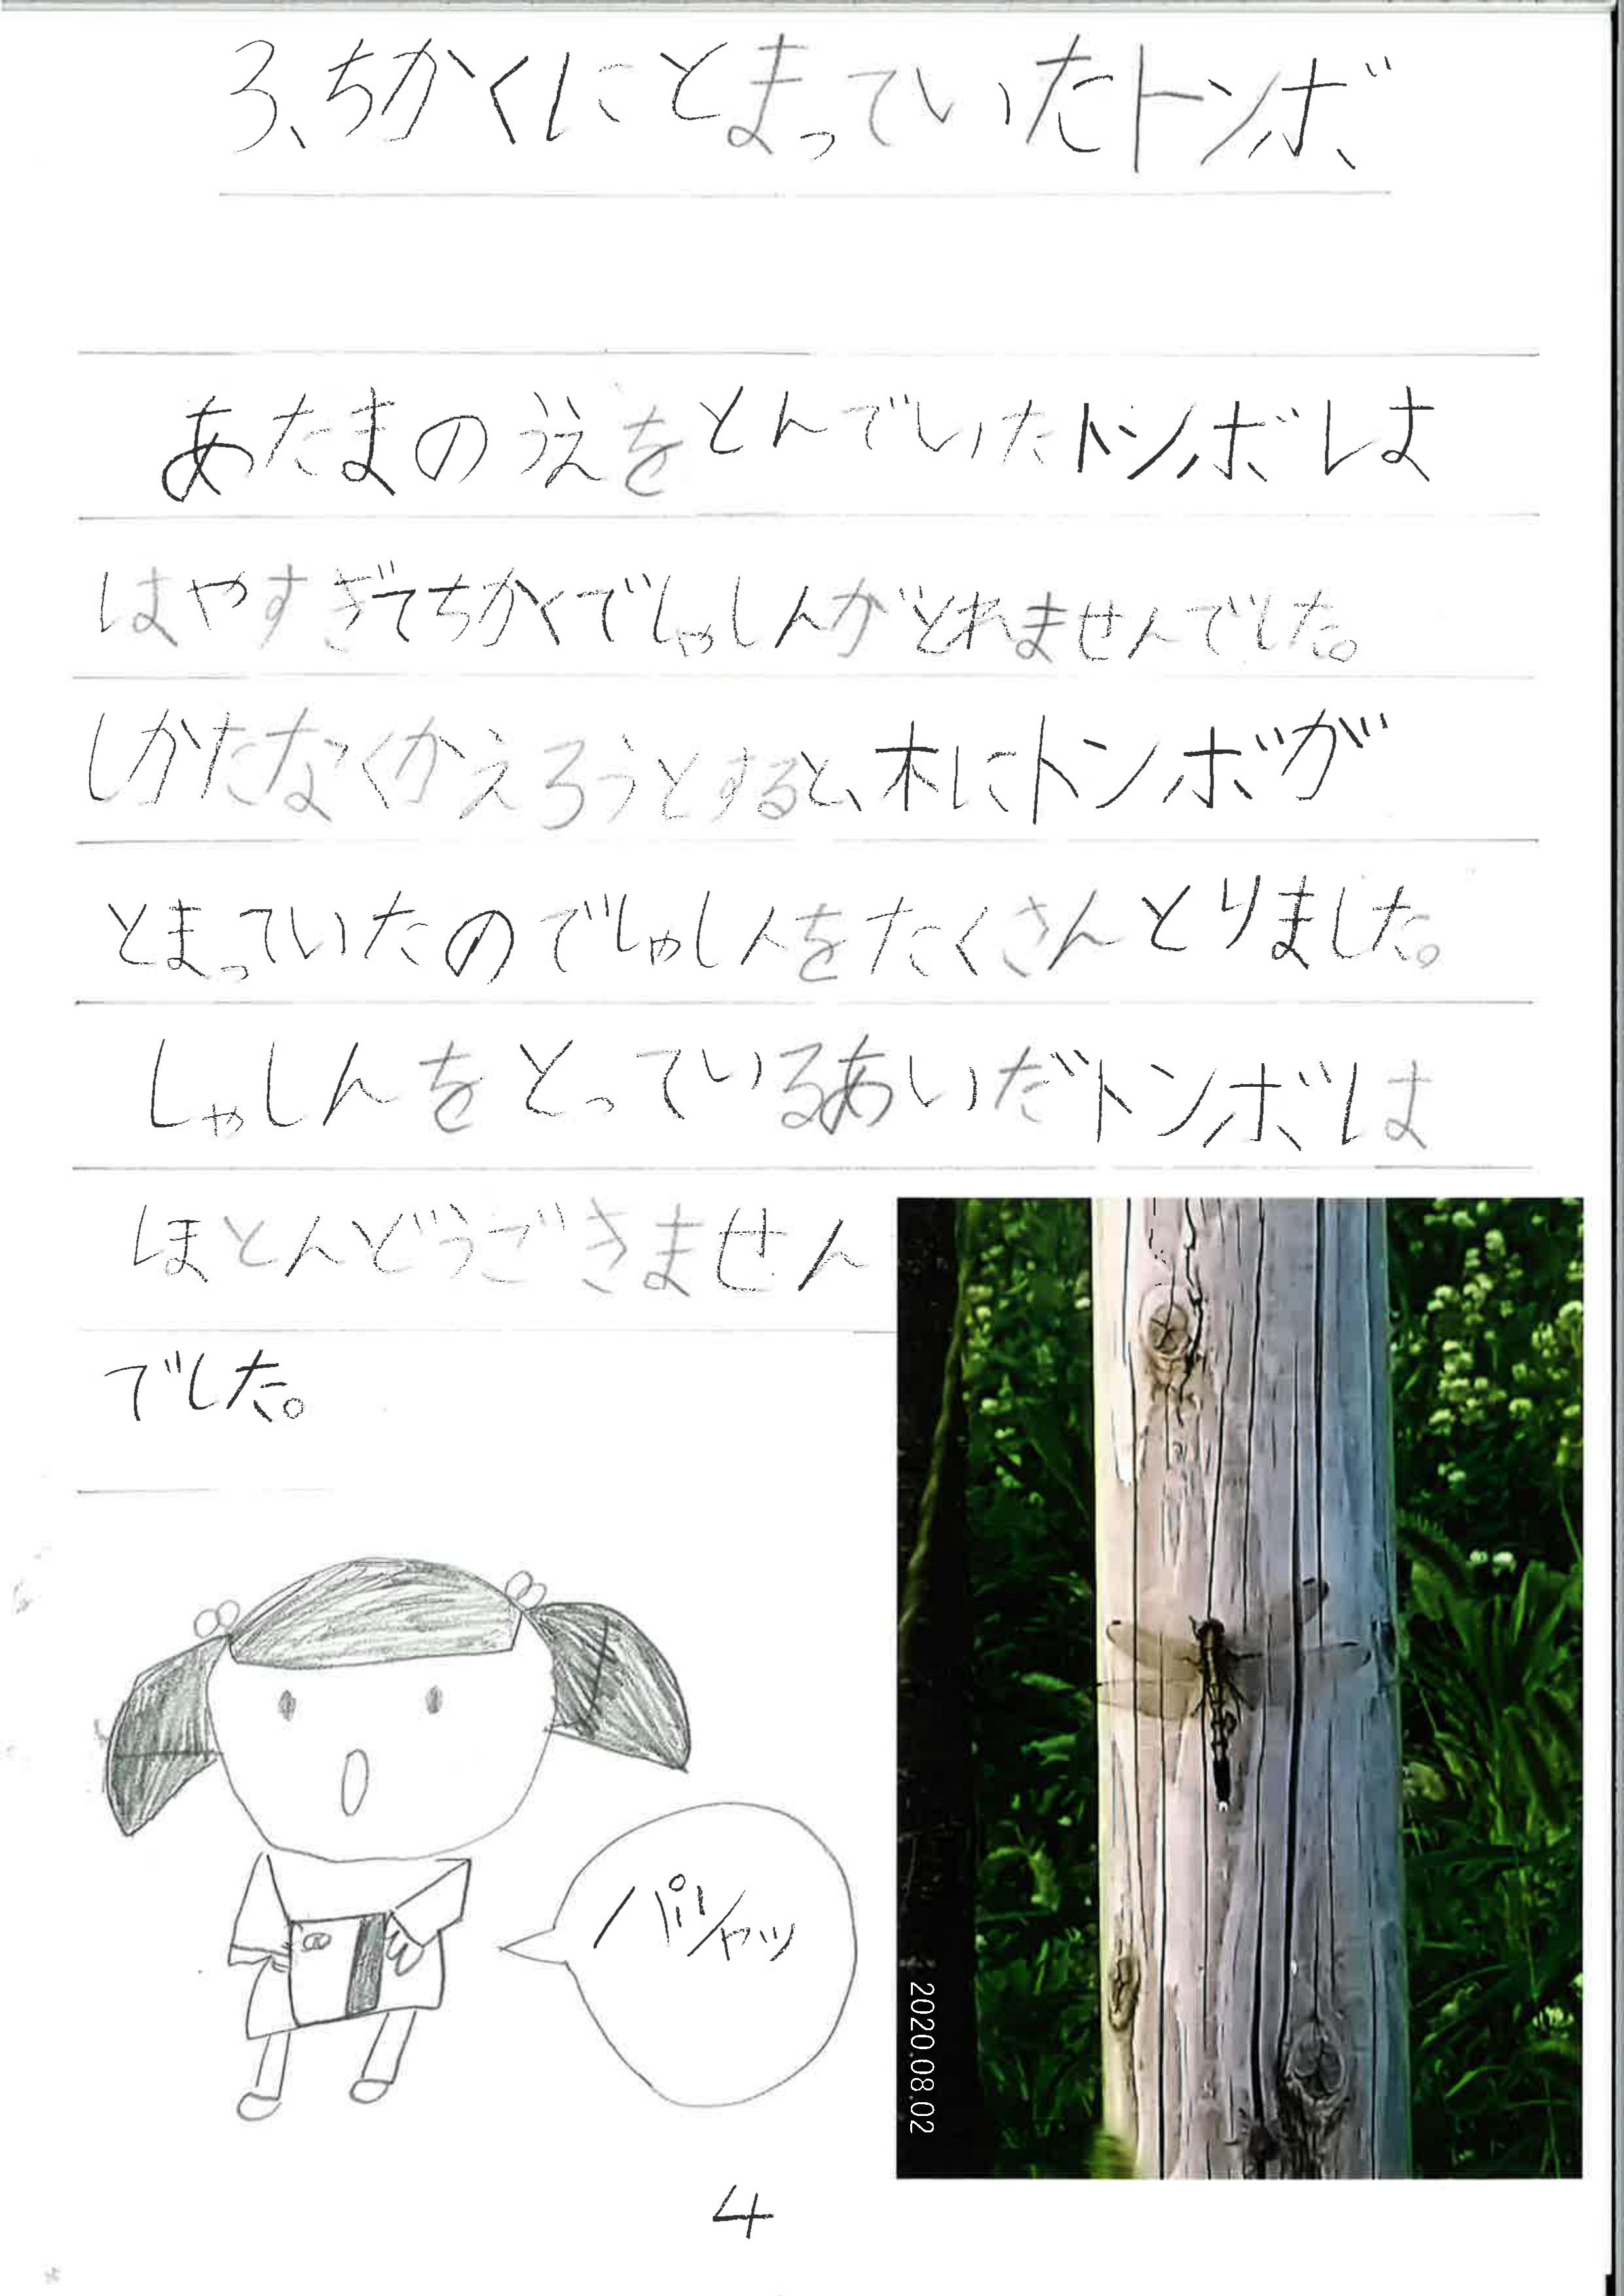 3、ちかくにとまっていたトンボ
あたまのうえをとんでいたトンボは
はやすぎてちかくでしゃしんがとれませんでした。
しかたなくかえろうとすると、木にトンボが
とまっていたのでしゃしんをたくさんとりました。
しゃしんをとっているあいだトンボは
ほとんどうごきません
でした。
パシャッ
2020.08.02
4